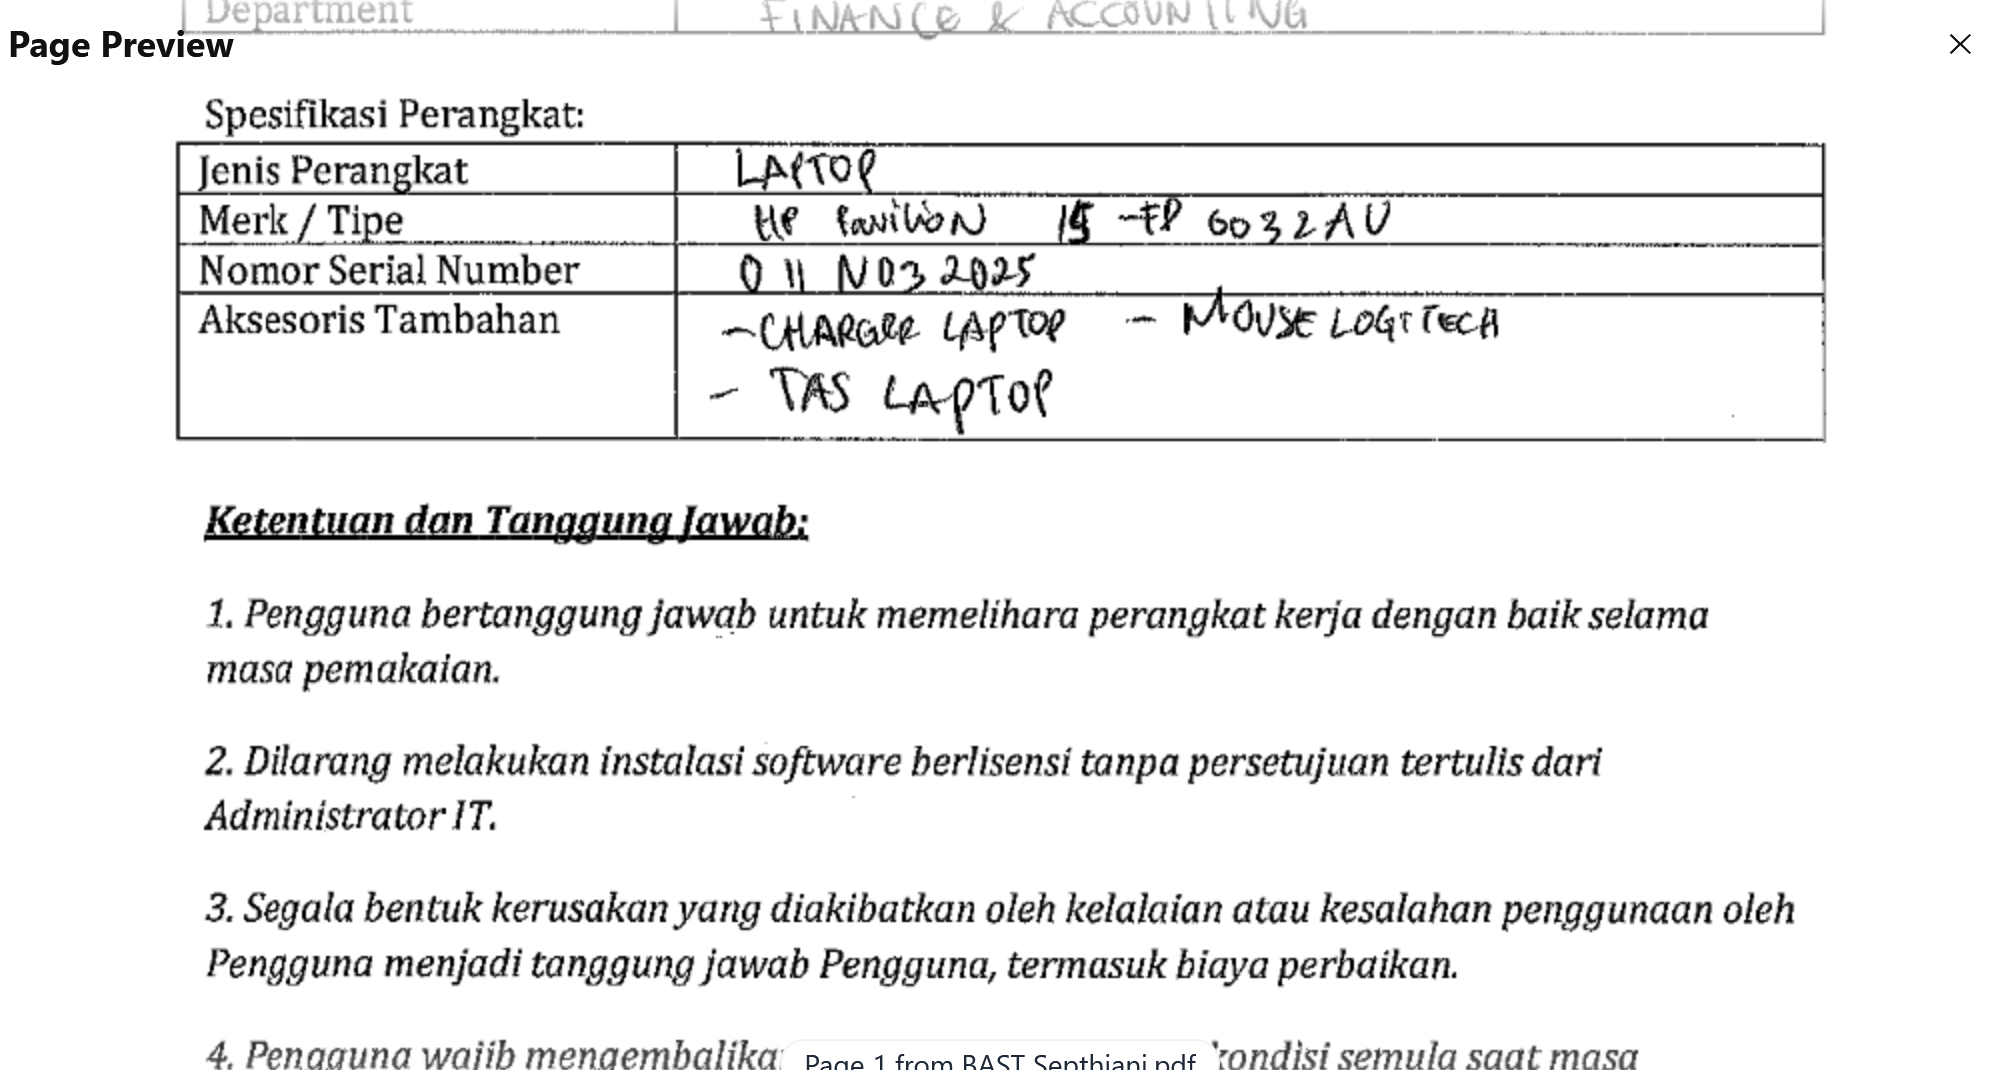 Department FINANCE & ACCOUNTING
Page Preview
Spesifikasi Perangkat:
Jenis Perangkat LAPTOP
Merk / Tipe HP Pavilion 15 -FP 6032AU
Nomor Serial Number 011 N032025
Aksesoris Tambahan -CHARGER LAPTOP - MOUSE LOGITECH
- TAS LAPTOP
Ketentuan dan Tanggung Jawab:
1. Pengguna bertanggung jawab untuk memelihara perangkat kerja dengan baik selama
masa pemakaian.
2. Dilarang melakukan instalasi software berlisensi tanpa persetujuan tertulis dari
Administrator IT.
3. Segala bentuk kerusakan yang diakibatkan oleh kelalaian atau kesalahan penggunaan oleh
Pengguna menjadi tanggung jawab Pengguna, termasuk biaya perbaikan.
4. Pengguna wajib mengembalika kondisi semula saat masa
Page 1 from BAST Septhiani.pdf